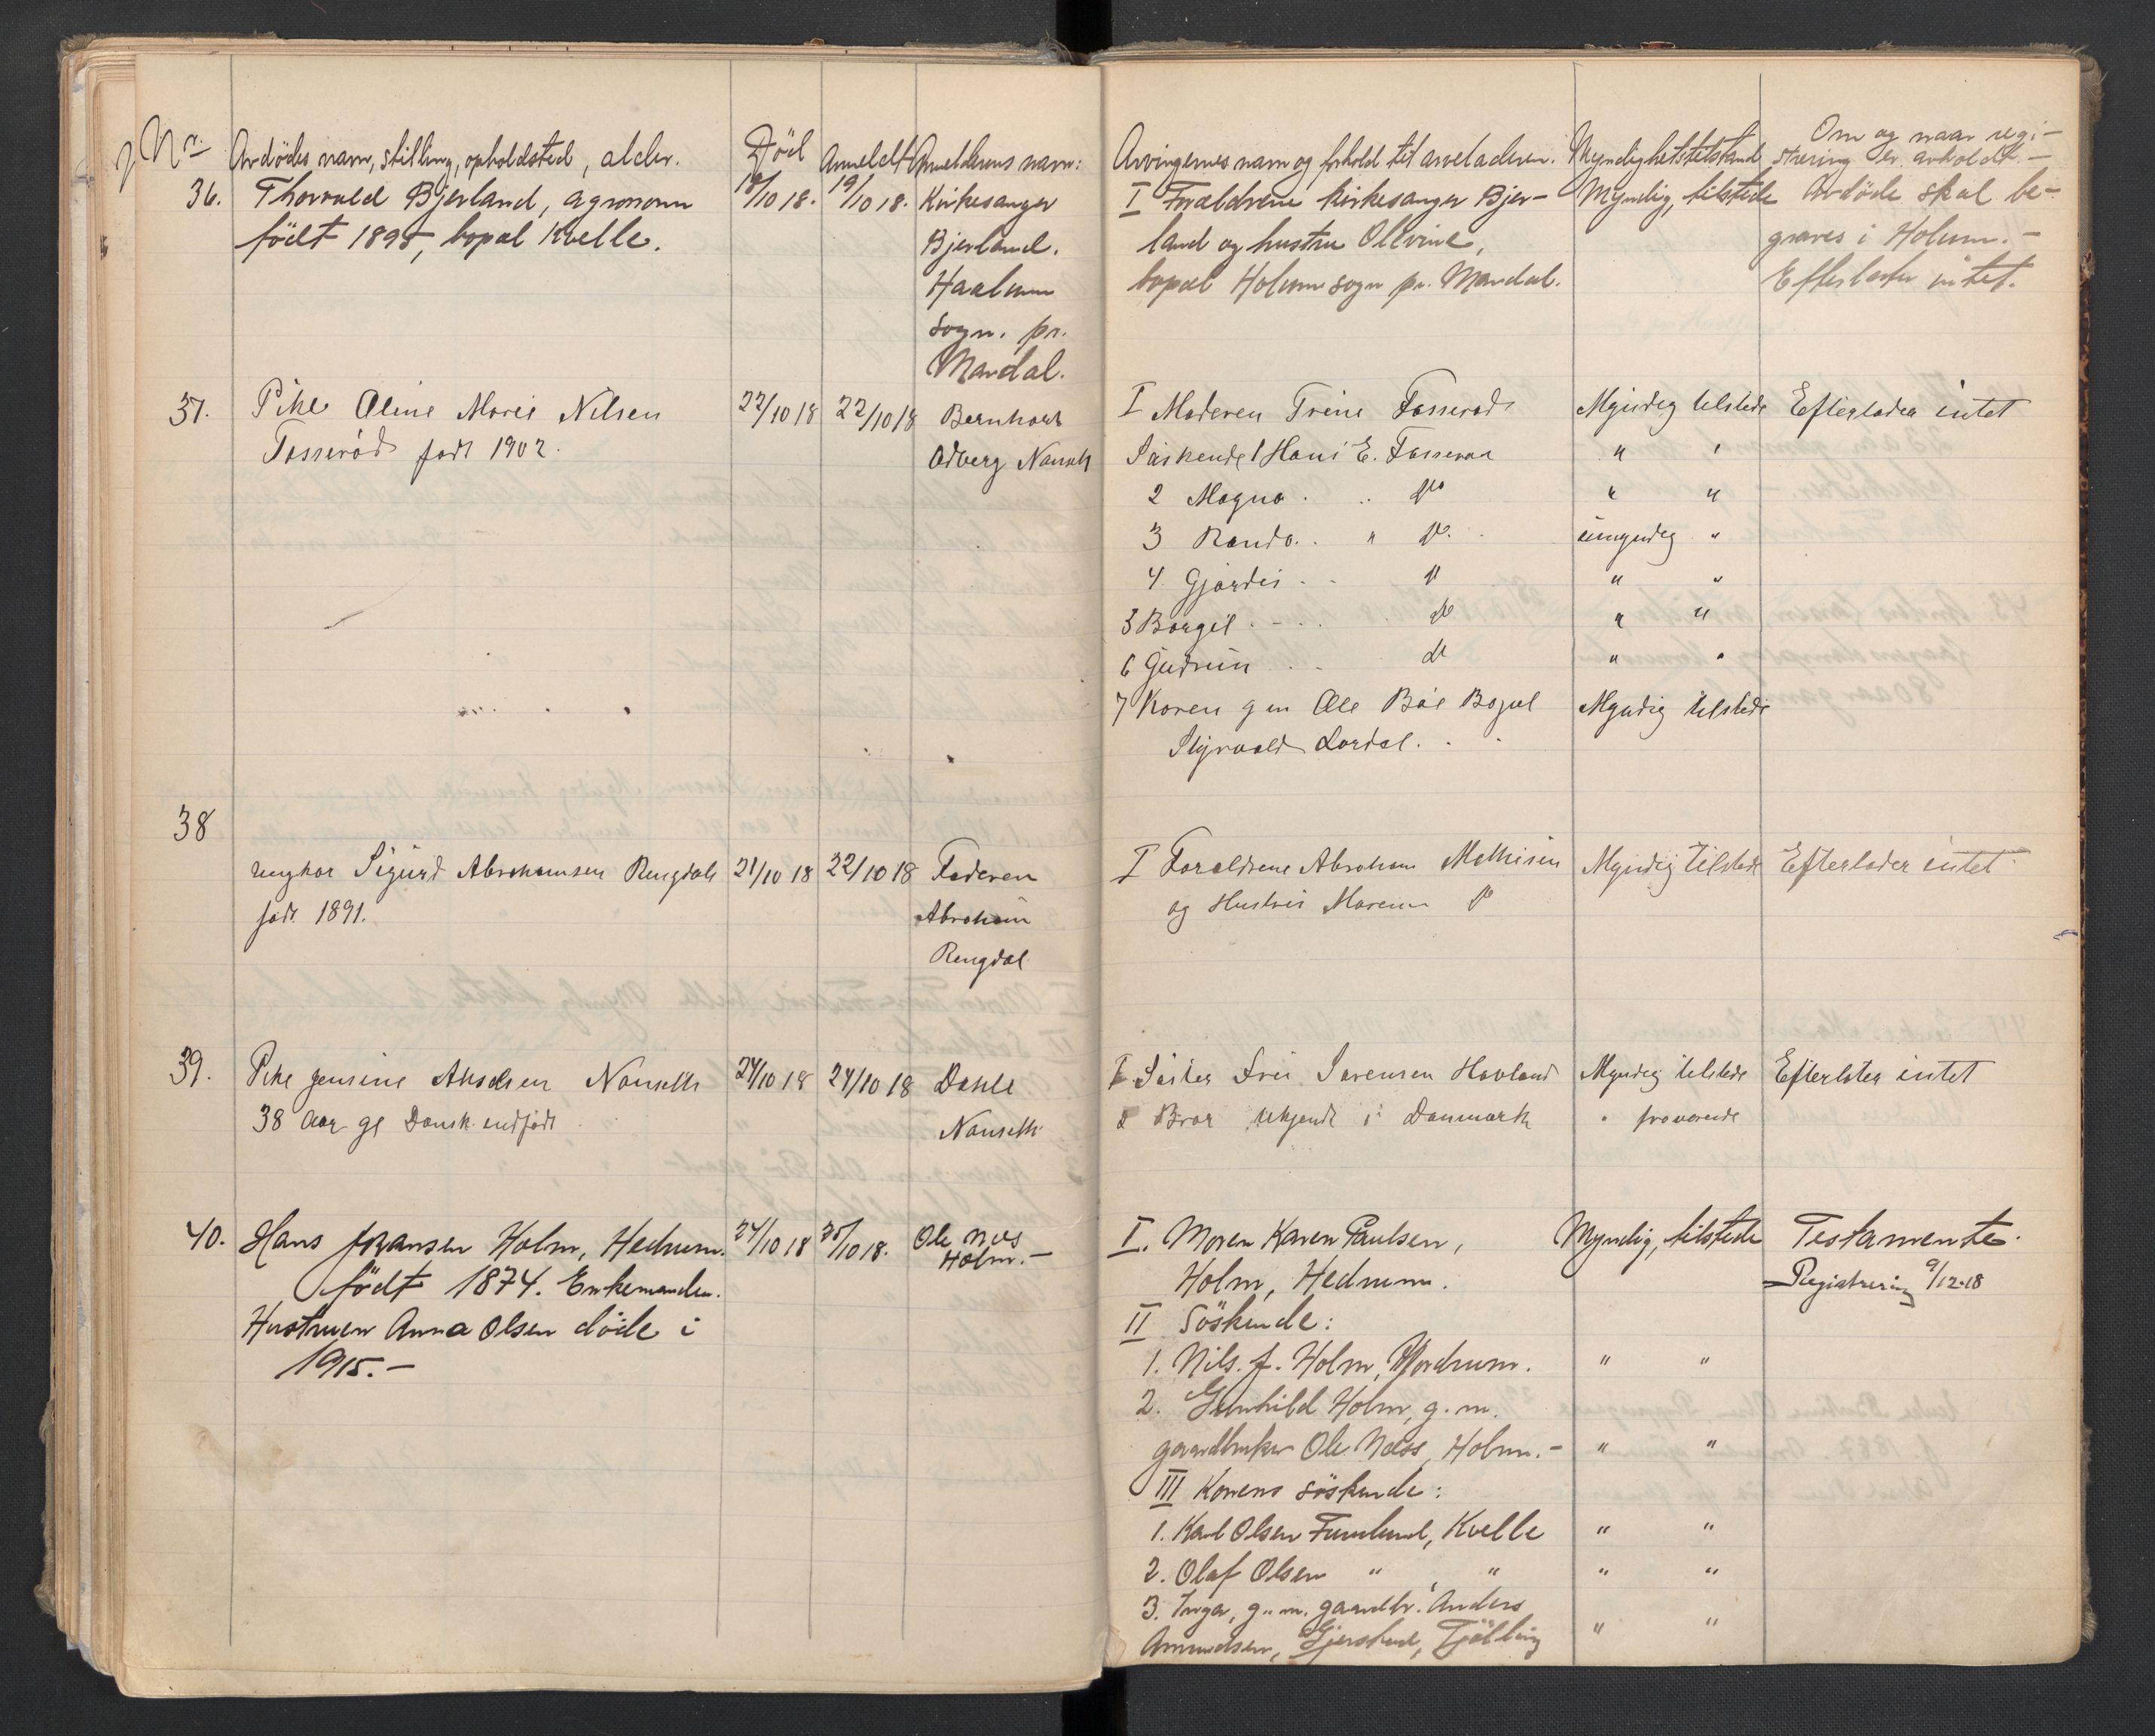 Nr.
Avdödes navn, stilling, opholdsted, alder.
Död
Anmeldt
Anmelderens navn:
Arvingernes navn og forhold til arveladeren.
Myndighetstilstand
Om og naar regi-
strering er avholdt. -
36.
Thorvald Bjerland, agronom
födt 1895, bopæl Kvelle.
18/10 18.
19/10 18.
Kirkesanger
Bjerland.
Haalum
sogn. pr.
Mandal.
I Forældrene kirkesanger Bjer-
land og hustru Ollevine,
bopæl Holum sogn pr. Mandal.
Myndig, tilstede
Avdöde skal be-
graves i Holum. -
Efterlater intet.
37.
Pike Oline Marie Nilsen
Fosserød født 1902.
22/10 18
22/10 18
Bernhart
Odberg Nanset
I Moderen Trine Fosserød
Søskende 1 Hans E. Fosserød
2 Magna . .. Do
3 Randa . " Do.
4 Gjordis . . Do
5 Borgil . - . . Do
6 Gudrun . . Do
7 Karen g m Ole Bøe Bopæl
Styrvold Lardal. . .
Myndig tilstede
" "
" "
umyndig "
" "
" "
" "
Myndig tilstede
Efterlader intet
38
ungkar Sigurd Abrahamsen Rengdal
født 1891.
21/10 18
22/10 18
Faderen
Abraham
Rengdal
I Foraldrene Abraham Mathisen
og Hustru Maren Do
Myndig tilstede
Efterlader intet
39.
Pike Jensine Akselsen Nanseth
38 Aar gl Dansk indfødt
24/10 18
24/10 18
Dahle
Nanseth
I Søster Fru Sørensen Hovland
2 Bror ukjendt i Danmark
Myndig tilstede
" fraværende
Efterlater intet
40.
Hans Johansen Holm, Hedrum.
födt 1874. Enkemanden.
Hustruen Anna Olsen döde i
1915. -
24/10 18
25/10 18.
Ole Næs
Holm. -
I. Moren Karen Paulsen,
Holm, Hedrum.
II Söskende:
1. Nils. J. Holm, Hedrum.
2. Gunhild Holm, g. m.
gaardbruker Ole Næss, Holm. -
III Konens söskende:
1. Karl Olsen Furulund, Kvelle
2. Olaf Olsen " "
3. Inga, g. m. gaardbr. Anders
Amundsen, Gjerstad, Tjölling
Myndig, tilstede
" "
" "
" "
" "
" "
Testamente.
Registrering 9/12-18